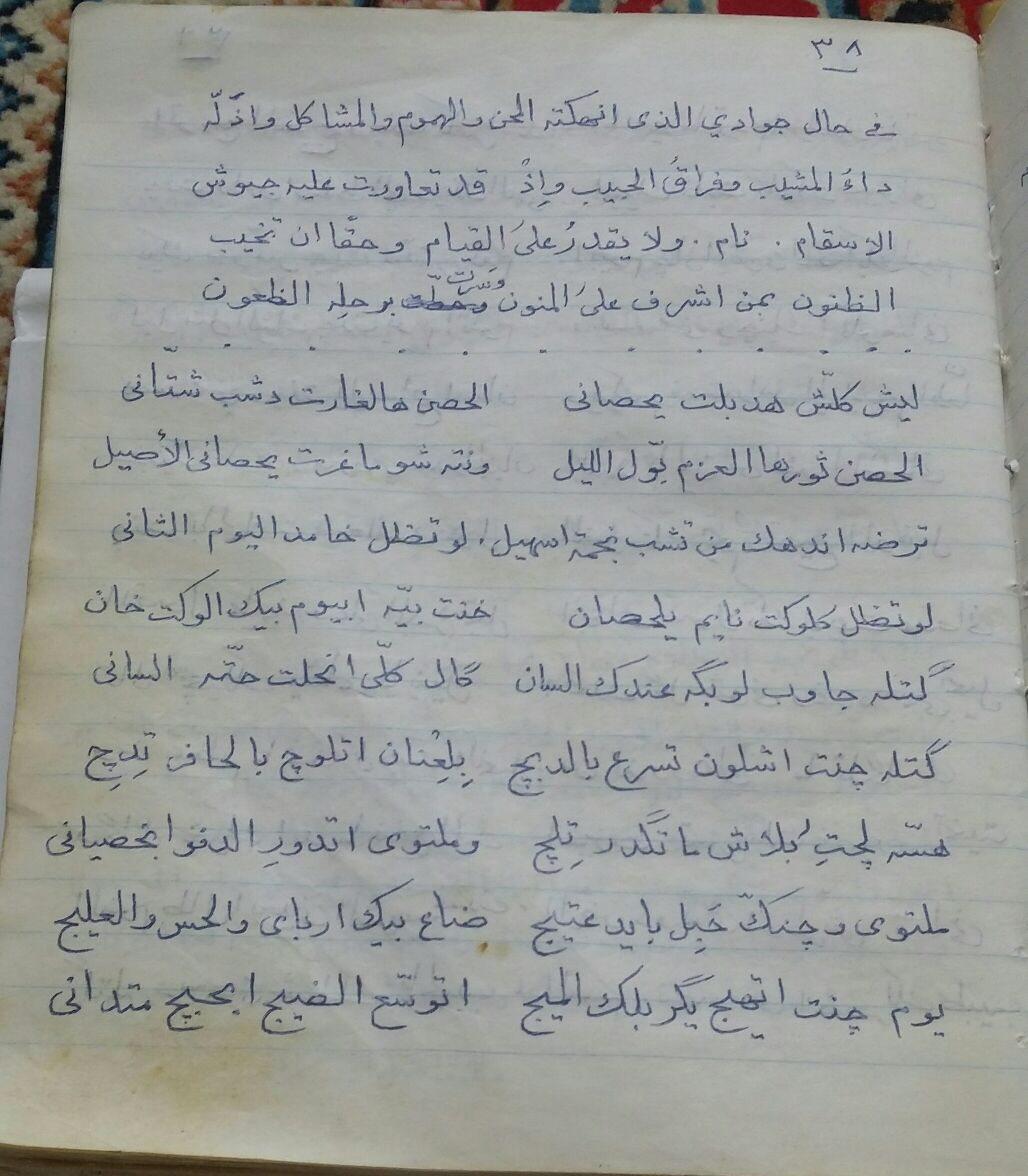 ٣٨
في حال جوادي الذى انهكته المحن والهموم والمشاكل واذَلّه
داءُ المشيب وفراقُ الحبيب وإذْ قد تعاورت عليه جيوش
الاسقام . نام . ولا يقدرُ علىَ القيام وحقًا ان تخيب
الظنون بمن اشرف علىَ المنون وَسَرت برحلِه الظعون
ليش كلّش هدبلت يحصانى الحصن هالغارت دشب شتّانى
الحصن ثورها العزم بّول الليل ونته شو ما غرت يحصانى الأصيل
ترضه اندهك من تشب نجمة اسهيل، لو تظل خامد اليوم الثانى
لو تظل كلوكت نايم يلحصان خنت بيّه ابيوم بيك الوكت خان
گتله جاوب لو بگه عندك السان گال كلّى انحلت حتّه السانى
گتله چنت اشلون تسرع بالدبچ بِلعِنان اتلوچ بالحافر تِدِچ
هسّه لچتِ ابلاش ما تگدر تِلچ وملتوى اتدورِ الدفو ابخصيانى
ملتوى وچنكّ حَبِل بايد عتيج ضاع بيك ارباى والحس والعليج
يوم چنت اتهيج يگر بلك الميج اتوسّع الضيج ابحيچ متدانى